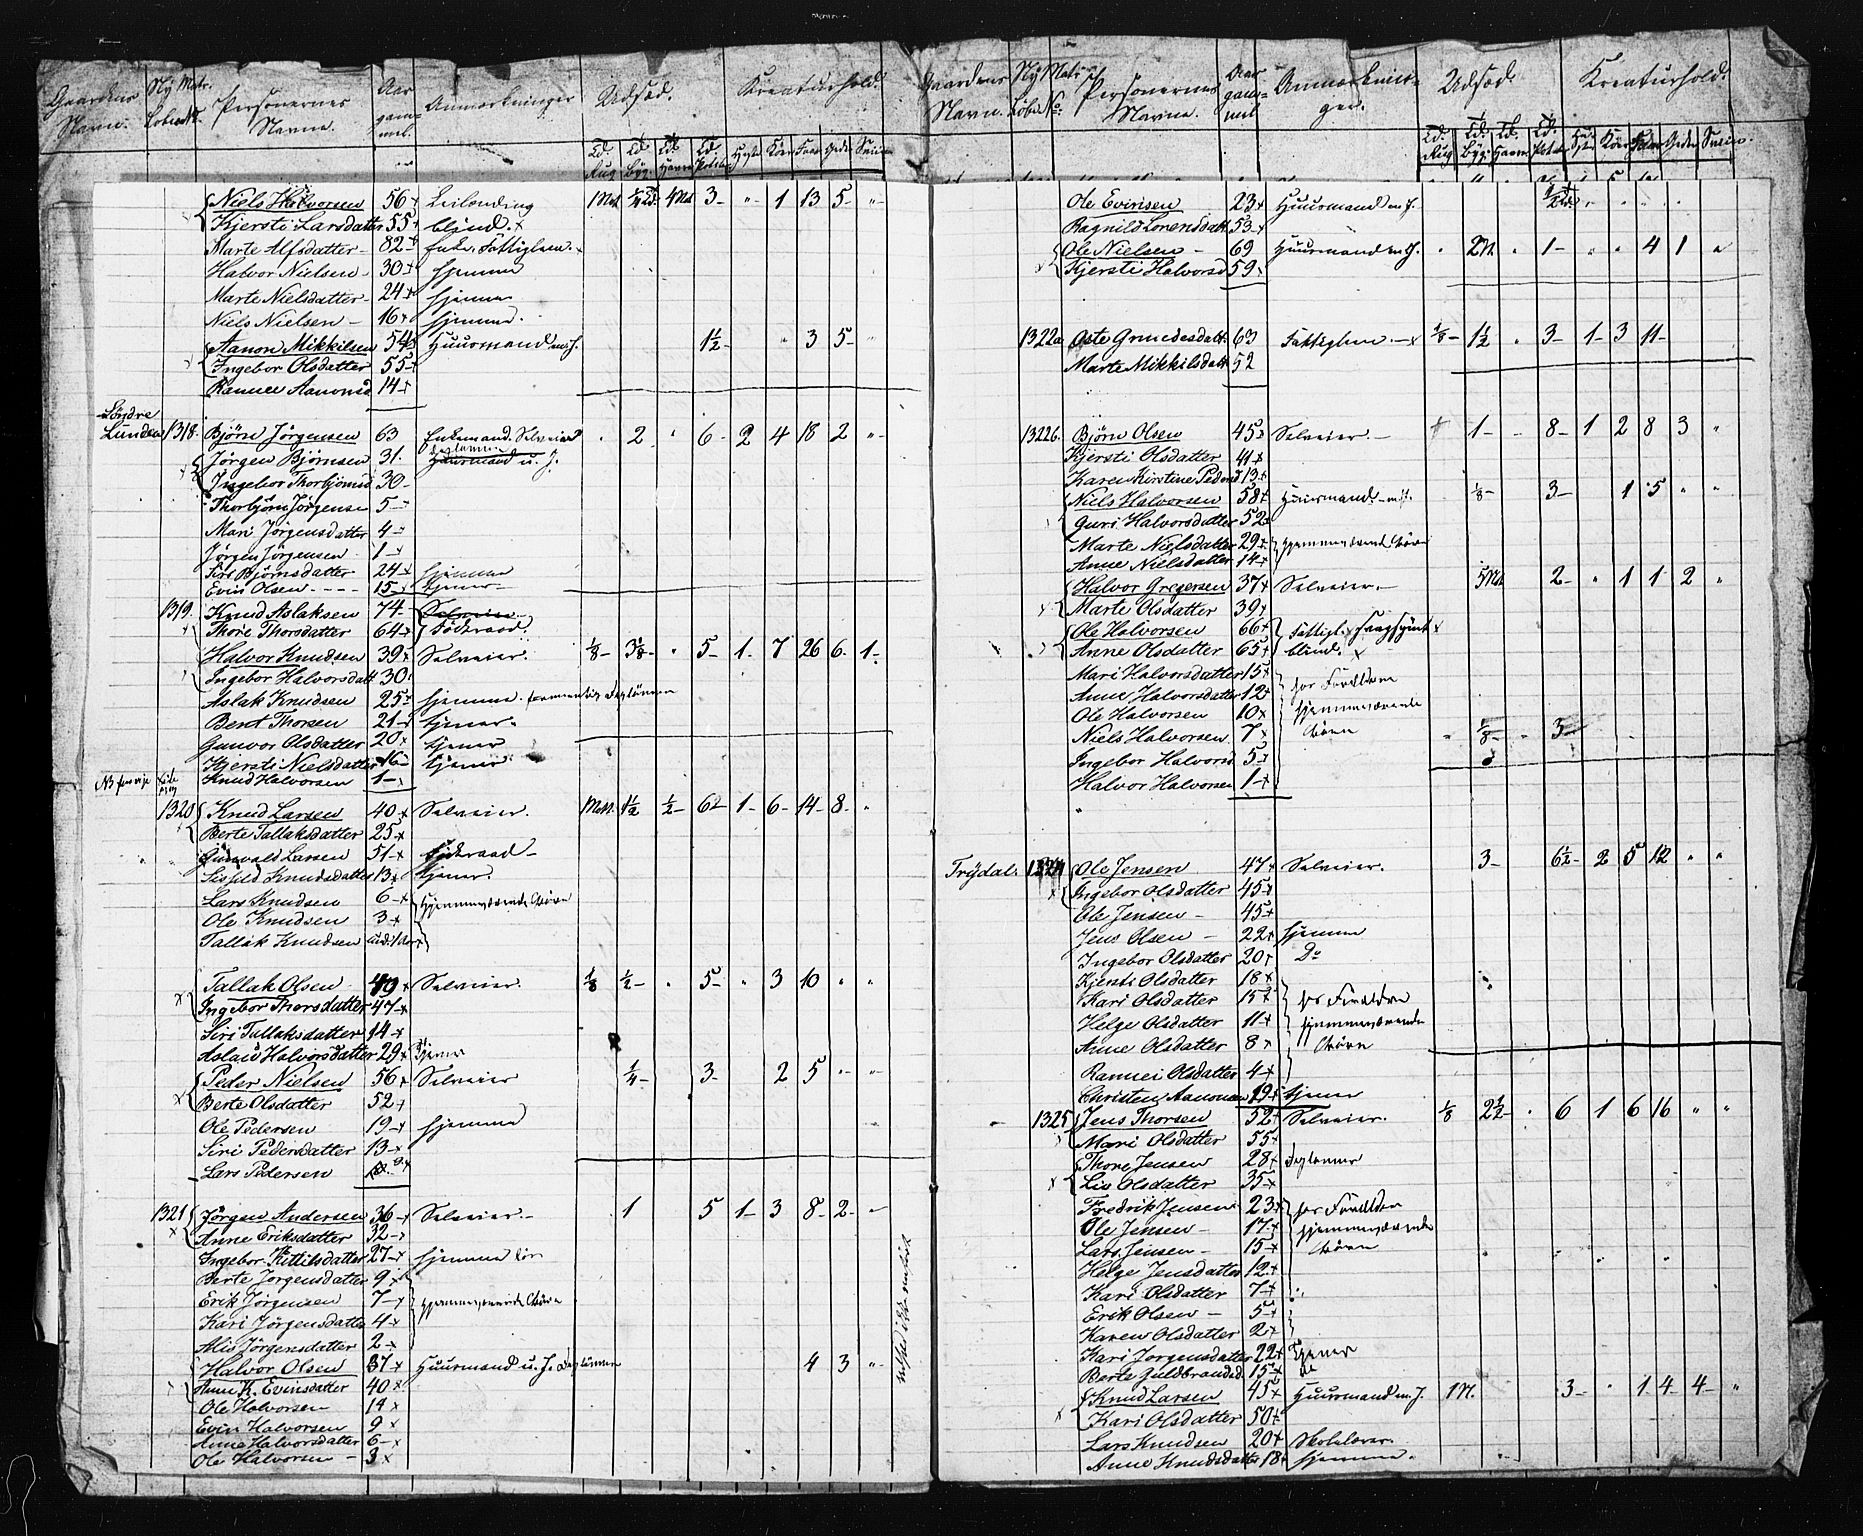 Gaardens Navn. Ny Matr. Løbe No. Personernes Navne. Aar gammel Anmærkninger Udsæd. Kreaturhold.
Td. Rug Td. Byg. Td. Havre Td. Potet. Heste Køer Faar Geder Sviin
Niels Halvorsen 56 Leilending 3 " 1 13 5 "
Kjersti Larsdatter 55 blind.
Marte Alfsdatter 82 Enke. Fattiglem.
Halvor Nielsen 30 hjemme
Marte Nielsdatter 24 hjemme
Niels Nielsen 16 hjemme.
Aanon Mikkilsen 54 Huusmand m. J. 1½ " 3 5 "
Ingebor Olsdatter 55
Rannei Aanonsd 14
Søndre Lunden 1318. Bjørn Jørgensen 63 Enkemand. Selveier " 2 " 6 2 4 18 2 "
Jørgen Bjørnsen 31 Huusmand u. J.
Ingebor Thorbjørnsd 30
Thorbjørn Jørgense 5
Mari Jørgensdatter 4
Jørgen Jørgensen 1
Siri Bjørnsdatter 24 hjemme
Evin Olsen 15 tjener
1319. Knud Aslaksen 74 Selveier
Thore Thorsdatter 64 Föderaad.
Halvor Knudsen 39 Selveier. ⅛ 3⅛ " 5 1 7 26 6 1
Ingebor Halvorsdatt 30
Aslak Knudsen 25 hjemme
Bent Thorsen 21 tjener.
Gunvor Olsdatter 20 tjener
Kjersti Nielsdatter 16 tjener
Knud Halvorsen 1
1320 Knud Larsen 40 Selveier. 1½ ½ 6 1 6 14 8 "
Berte Tallaksdatter 25
Gunvald Larsen 51 föderaad
Sigfeld Knudsdatter 13 tjener.
Lars Knudsen 6 hjemmeværende Børn
Ole Knudsen 3
Tallak Knudsen und. 1 Aar
Tallak Olsen 49 Selveier. ⅛ ½ " 5 " 3 10 " "
Ingebor Thorsdatter 47
Siri Tallaksdatter 14
Aslaug Halvorsdatter 29 Tjener
Peder Nielsen 56 Selveier ¼ 3 2 5 " "
Berte Olsdatter 52
Ole Pedersen 19 hjemme
Siri Pedersdatter 13
Lars Pedersen 9
1321 Jørgen Andersen 36 Selveier. 1 5 1 3 8 2 "
Anne Eriksdatter 32
Ingebor Kittilsdatter 27 hjemme
Berte Jørgensdatter 9
Erik Jørgensen 7 hjemmeværende Børn
Kari Jørgensdatter 4
Alis Jørgensdatter 2
Halvor Olsen 37 Huusmand u. J. Daglønner 4 3 "
Anne K. Evinsdatter 40
Ole Halvorsen 14
Evin Halvorsen 9
Anne Halvorsdatter 6
Ole Halvorsen 3
Gaardens Navn. Ny Matr. Løbe No. Personernes Navne. Aar gammel Anmærkninger. Udsæd. Kreaturhold.
Td. Rug Td. Byg. Td. Havre Td. Potet. Heste Køer Faar Geder Sviin.
Ole Evinsen 23 Huusmand m. J.
Ragnild Lorensdatt 53
Ole Nielsen 69 Huusmand m. J. " 2M " 1 " " 4 1 "
Kjersti Halvorsd 59
1322a Aste Grundesdatt. 63 Fattiglem ⅛ 1½ " 3 1 3 11
Marte Mikkilsdatt 52
1322b. Bjørn Olsen 45 Selveier. 1 8 1 2 8 3 "
Kjersti Olsdatter 41
Karen Kirstine Pedersd 13
Niels Halvorsen 58 Huusmand m. J. ⅛ 3 1 5 " "
Guri Halvorsdatter 52
Marte Nielsdatter 29 hjemmeværende Børn
Anne Nielsdatter 14
Halvor Gregersen 37 Selveier. 5M 2 " 1 1 2 "
Marte Olsdatter 39
Ole Halvorsen 66 Fattigl.
Anne Olsdatter 65 blind.
Mari Halvorsdatter 15 hos Forældre
Anne Halvorsdatter 12 hjemmeværende
Ole Halvorsen 10 Børn
Niels Halvorsen 7 " ⅛ " 3
Ingebor Halvorsd 5
Halvor Halvorsen 1
Trÿdal. 1324 Ole Jensen 47 Selveier. 3 6½ 2 5 12 " "
Ingebor Olsdatter 45
Ole Jensen 45
Jens Olsen 22 hjemme
Ingebor Olsdatter 20 Do
Kjersti Olsdatter 18
Kari Olsdatter 15 hos Forældre
Helge Olsdatter 11 hjemmeværende
Anne Olsdatter 8 Børn
Rannei Olsdatter 4
Christen Aanonsen 19 tjener
1325 Jens Thorsen 52 Selveier. ⅛ 2½ " 6 1 6 16 " "
Mari Olsdatter 55
Thore Jensen 28 Daglønner
Liv Olsdatter 35
Fredrik Jensen 23 hos Forældre
Ole Jensen 17 hjemmeværende
Lars Jensen 15 Børn
Helge Jensdatter 12
Kari Olsdatter 7
Erik Olsen 5
Karen Olsdatter 2
Kari Jorgensdatter 22 Tjener
Berte Guldbrandsd. 15 do
Knud Larsen 45 Huusmand m. J. 1M. 3 " 1 4 4 "
Kari Olsdatter 50
Lars Knudsen 20 Skolelærer.
Anne Knudsdatter 18 hjemme.